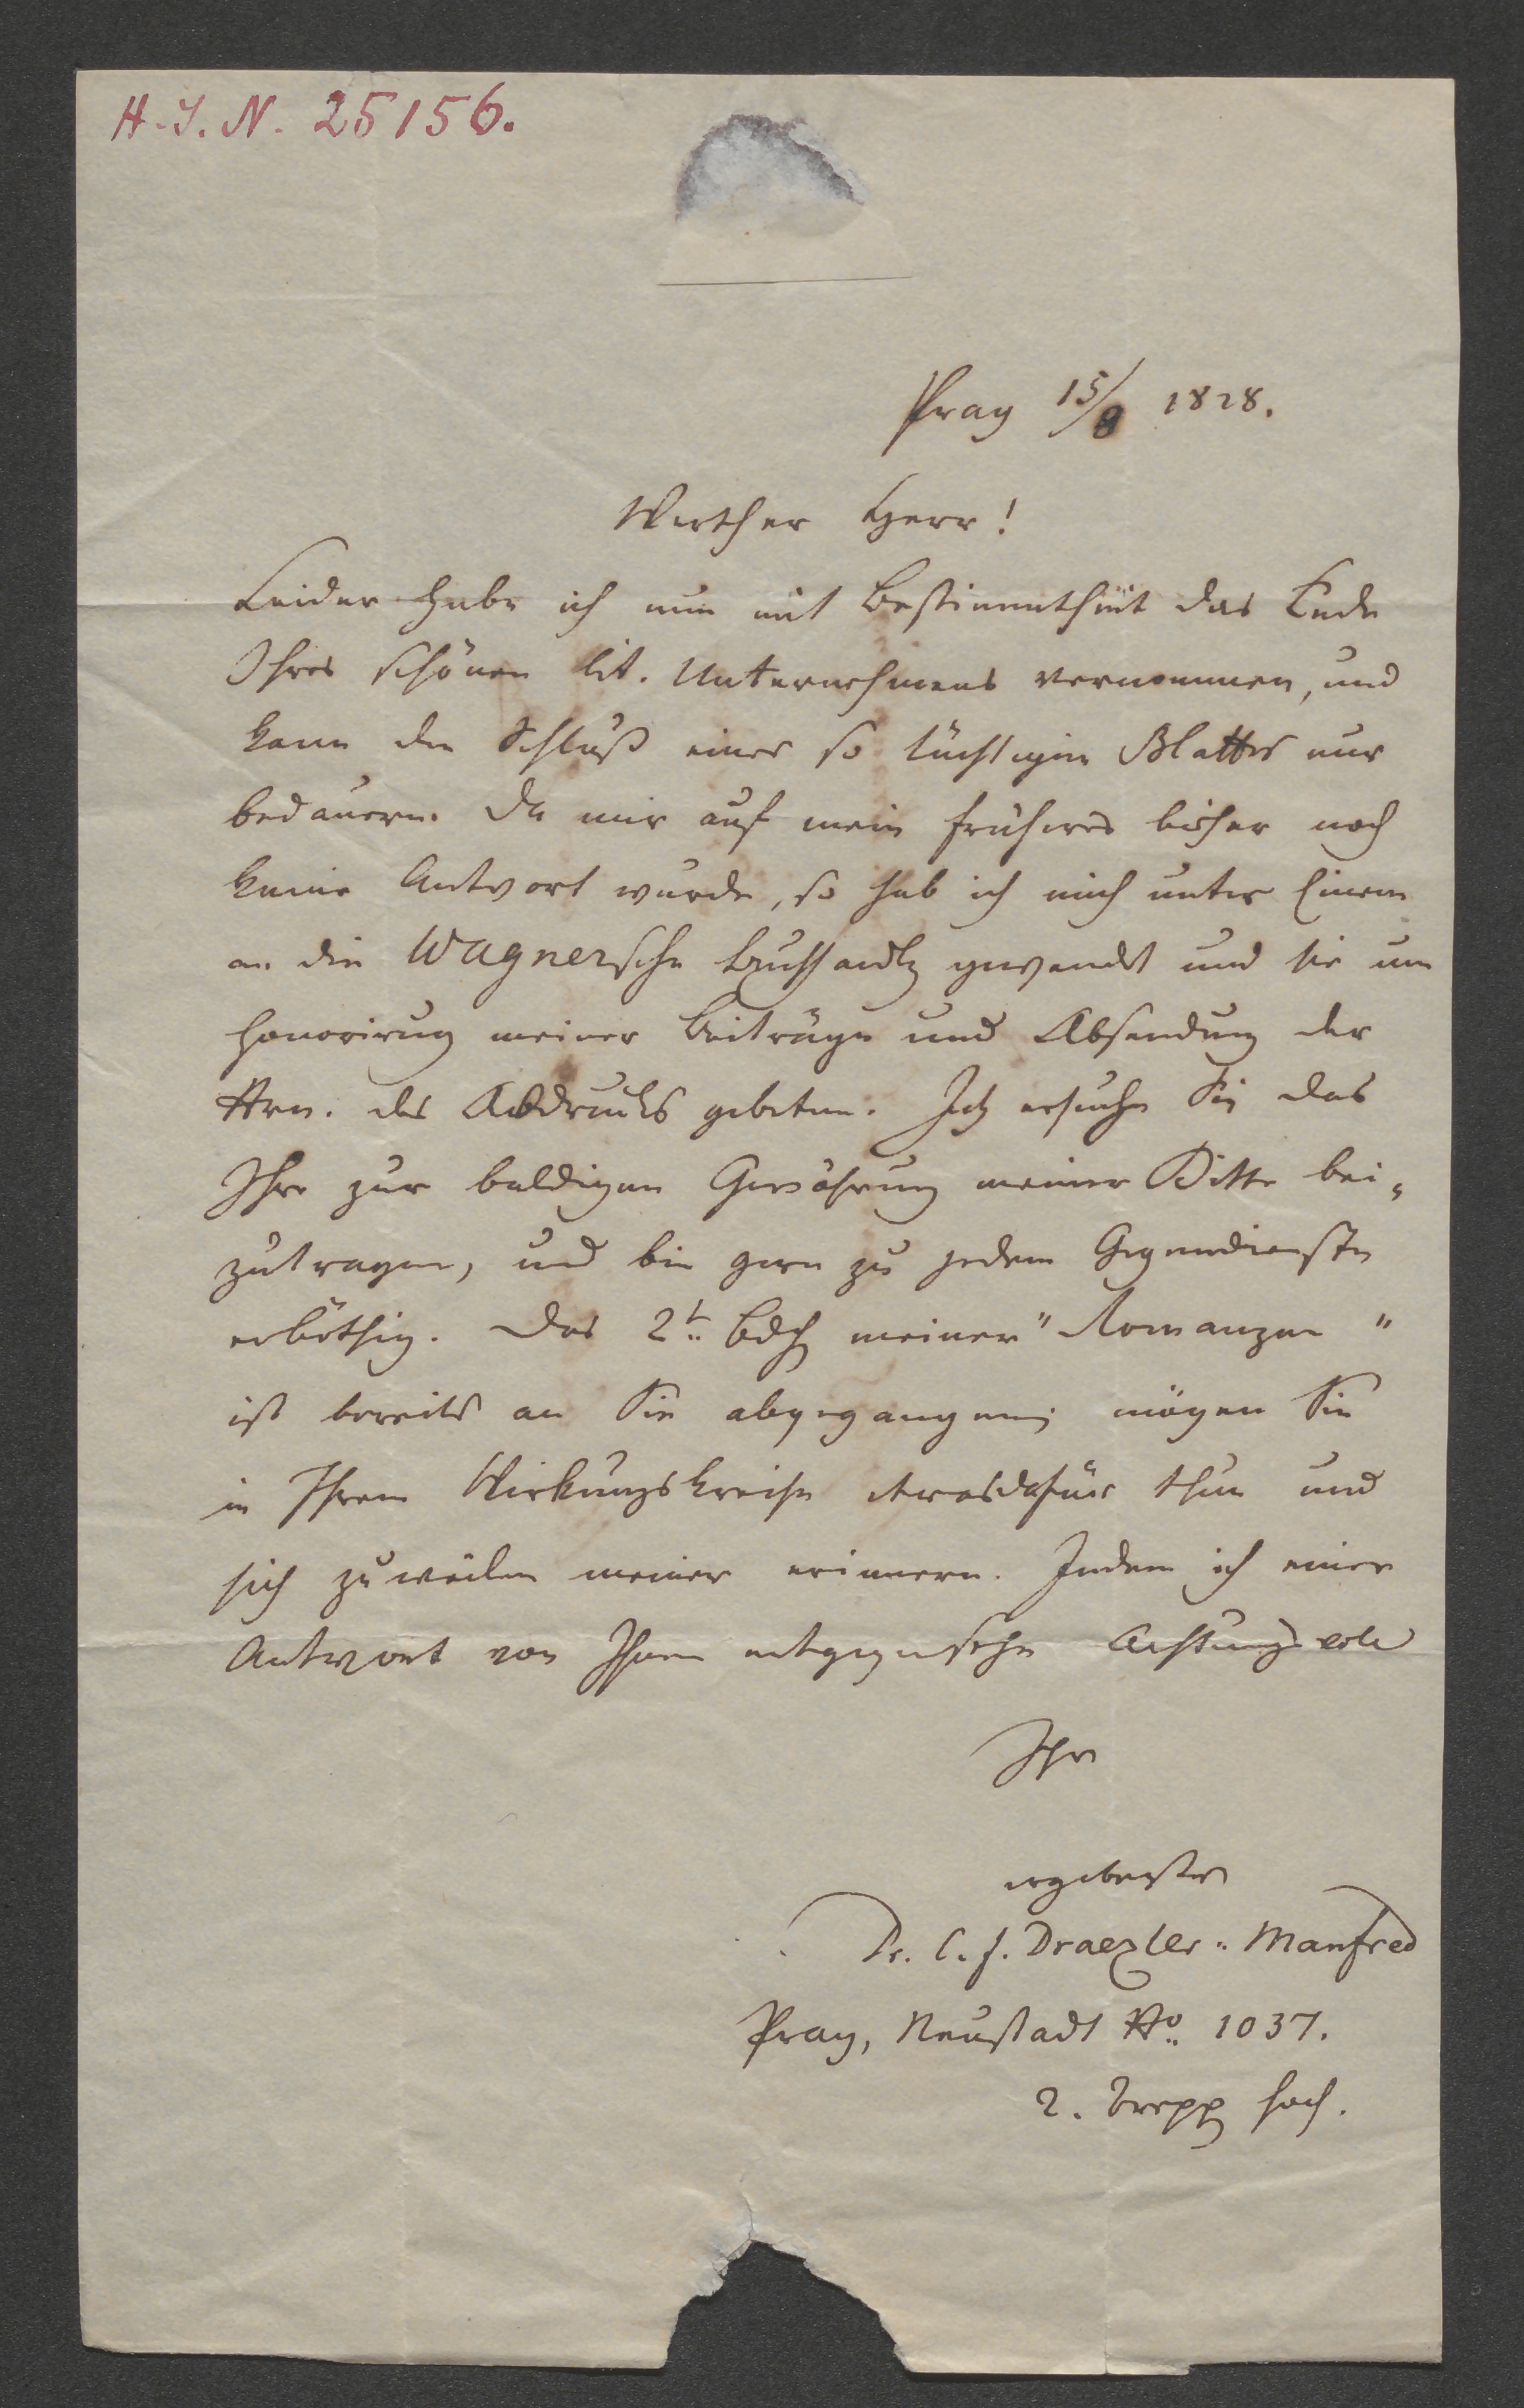 H. I. N. 25156.
Prag 15/8 1828.
Werther Herr!
Leider habe ich nun mit Bestimmtheit das Ende
Ihres schönen lit. Unternehmens vernommen, und
kann den Schluß eines so tüchtigen Blattes nur
bedauern. Da mir auf mein früheres bisher noch
keine Antwort wurde, so hab ich mich unter Einem
an die Wagnersche Buchhandlg gewendet und sie um
Honorirung meiner Beiträge und Absendung der
Nrn. des Abdrucks gebeten. Ich ersuche Sie das
Ihre zur baldigen Gewährung meiner Bitte bei-
zutragen, und bin gern zu jedem Gegendienste
erböthig. Das 2t. Bdch meiner "Romanzen"
ist bereits an Sie abgegangen; mögen Sie
in Ihrem Wirkungskreise etwas dafür thun und
sich zuweilen meiner erinnern. Indem ich einer
Antwort von Ihnen entgegensehe Achtungsvoll
Ihr
ergebenster
Dr. C. F. Draexler-Manfred
Prag, Neustadt No. 1037.
2. Trepp hoch.